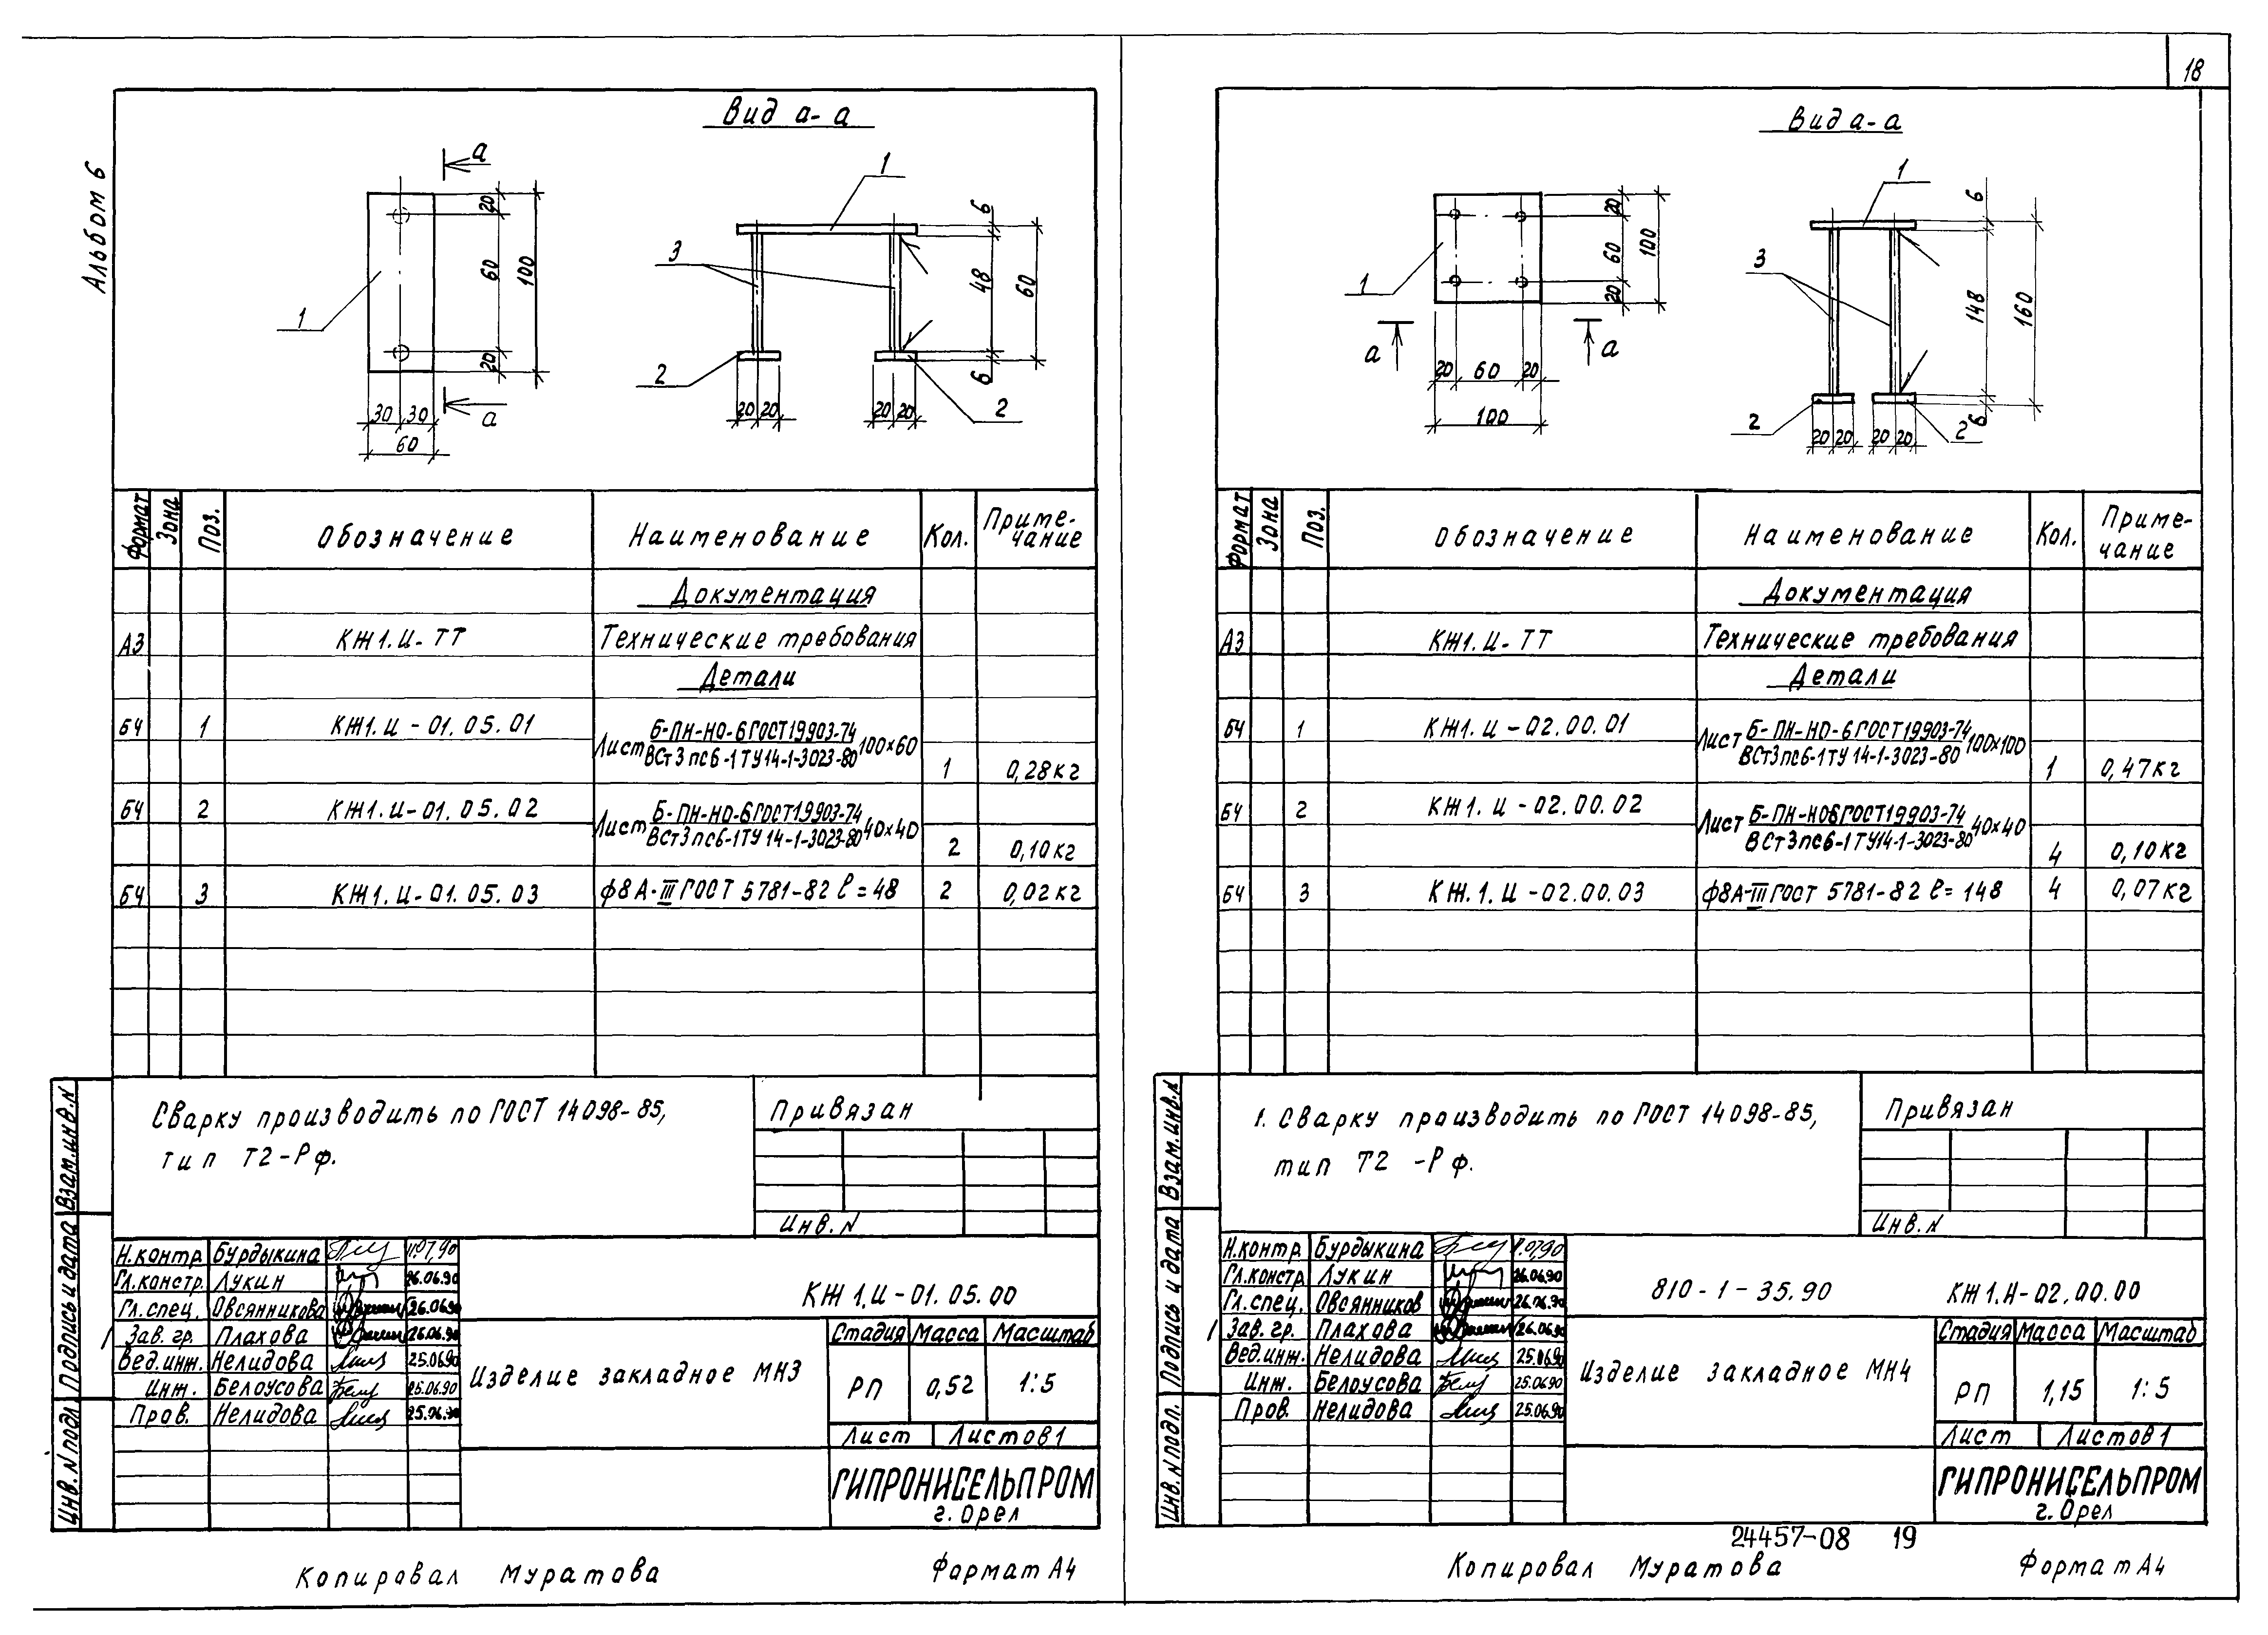 18
Альбом 6
Вид а-а
а
а
1
20
60
20
100
30
30
60
1
3
2
2
6
48
6
60
20
20
20
20
Формат
Зона
Поз.
Обозначение
Наименование
Кол.
Приме-
чание
Документация
А3
КЖ1.И-ТТ
Технические требования
Детали
БЧ
1
КЖ1.И-01.05.01
Лист Б-ПН-НО-6 ГОСТ 19903-74
ВСт3пс6-1 ТУ 14-1-3023-80 100х60
1
0,28кг
БЧ
2
КЖ1.И-01.05.02
Лист Б-ПН-НО-6 ГОСТ 19903-74
ВСт3пс6-1 ТУ 14-1-3023-80 40х40
2
0,10кг
БЧ
3
КЖ1.И-01.05.03
ф8 А-III ГОСТ 5781-82 ℓ=48
2
0,02кг
Сварку производить по ГОСТ 14098-85,
тип Т2-Рф.
Привязан
Инв.N
Взам.инв.N
Подпись и дата
Инв.N подл.
Н.контр. Бурдыкина 11.07.90
Гл.констр. Лукин 26.06.90
Гл.спец. Овсянникова 26.06.90
Зав. гр. Плахова 26.06.90
Вед.инж. Нелидова 25.06.90
Инж. Белоусова 25.06.90
Пров. Нелидова 25.06.90
КЖ1.И-01.05.00
Изделие закладное МН3
Стадия
Масса
Масштаб
РП
0,52
1:5
Лист
Листов 1
ГИПРОНИСЕЛЬПРОМ
г. Орел
Копировал Муратова
Формат А4
Вид а-а
1
а
а
20
60
20
100
20
60
20
100
1
3
2
2
6
148
6
160
20
20
20
20
Формат
Зона
Поз.
Обозначение
Наименование
Кол.
Приме-
чание
Документация
А3
КЖ1.И-ТТ
Технические требования
Детали
БЧ
1
КЖ1.И-02.00.01
Лист Б-ПН-НО-6 ГОСТ 19903-74
ВСт3пс6-1 ТУ 14-1-3023-80 100х100
1
0,47кг
БЧ
2
КЖ1.И-02.00.02
Лист Б-ПН-НО6 ГОСТ 19903-74
ВСт3пс6-1 ТУ 14-1-3023-80 40х40
4
0,10кг
БЧ
3
КЖ.1.И-02.00.03
ф8А-III ГОСТ 5781-82 ℓ=148
4
0,07кг
1. Сварку производить по ГОСТ 14098-85,
тип Т2 -Рф.
Привязан
Инв.N
Взам.инв.N
Подпись и дата
Инв.N подл.
Н.контр. Бурдыкина 11.07.90
Гл.констр. Лукин 26.06.90
Гл.спец. Овсянников 26.06.90
Зав. гр. Плахова 26.06.90
Вед.инж. Нелидова 25.06.90
Инж. Белоусова 25.06.90
Пров. Нелидова 25.06.90
810-1-35.90 КЖ1.И-02.00.00
Изделие закладное МН4
Стадия
Масса
Масштаб
РП
1,15
1:5
Лист
Листов 1
ГИПРОНИСЕЛЬПРОМ
г. Орел
24457-08 19
Копировал Муратова
Формат А4